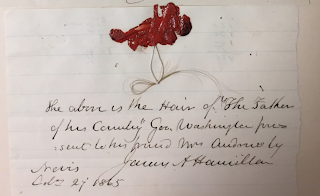 The above is the Hair of "The Father
of his Country" Geo. Washington pre=
sent to his friend Mrs Andrews by
James A Hamilton
Nevis
Octr 29 1865